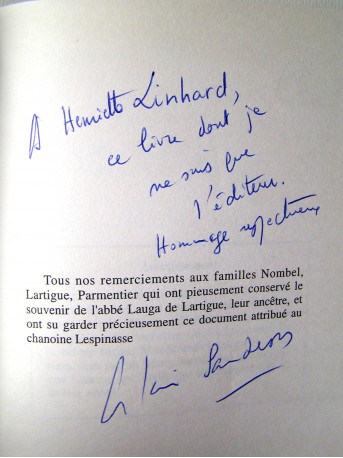 A Henriette Linhard,
ce livre dont je
ne suis que
l'éditeur.
Hommage respectueux
Tous nos remerciements aux familles Nombel,
Lartigue, Parmentier qui ont pieusement conservé le
souvenir de l'abbé Lauga de Lartigue, leur ancêtre, et
ont su garder précieusement ce document attribué au
chanoine Lespinasse